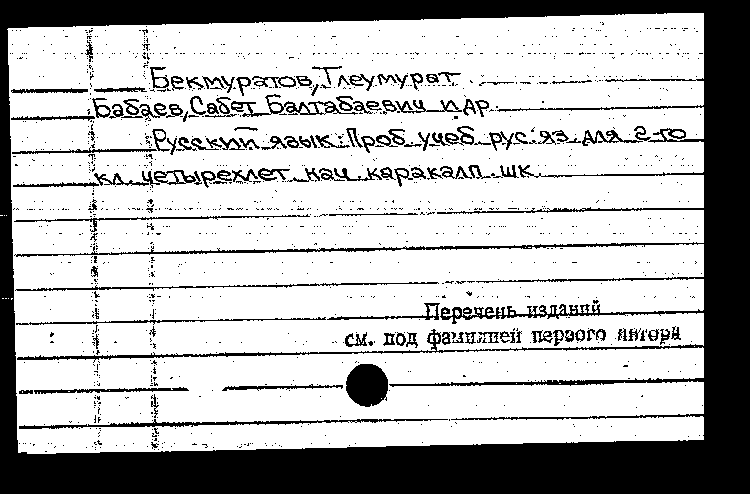 Бекмуратов, Тлеумурат
Бабаев, Сабет Балтабаевич и др.
Русский язык: Проб. учеб. рус. яз. для 2-го
кл. четырехлет. нач. каракалп. шк.
Перечень изданий
см. под фамилией первого автора